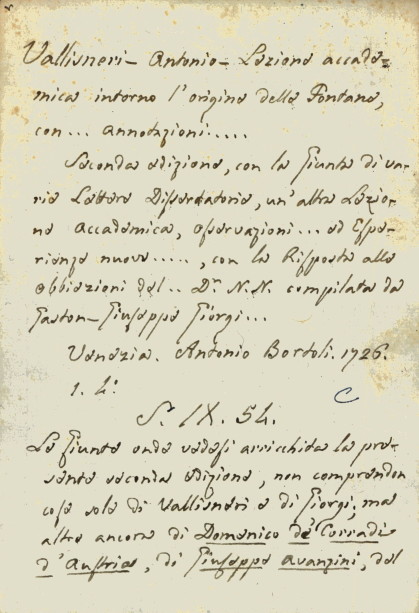 Vallisneri - Antonio - Lezione accade=
mica intorno l'origine delle Fontane,
con... annotazioni.....
Seconda edizione, con la Giunta di va-
rie Lettere Dissertatorie, un'altra Lezio-
ne Accademica, osservazioni... ed Espe-
rienze nuove....., con la Risposta alle
obbiezioni del.. Dr. N.N. compilata da
Gaston-Giuseppe Giorgi...
Venezia. Antonio Bortoli. 1726.
1. 4º.
C
S. IX. 54.
Le Giunte onde vedesi arricchita la pre-
sente seconda edizione, non comprendon
cose sole di Vallisneri e di Giorgi; ma
altre ancora di Domenico de' Corradi
d'Austria, di Giuseppe Avanzini, del